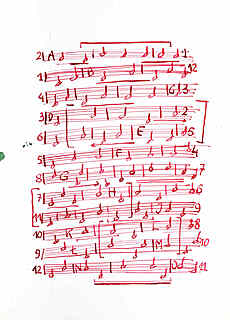 2 A 1
1 B 12
4 C 3
3 D 2
6 E 5
5 F 4
8 G 7
7 H 6
11 J 9
10 K L 8
9 M 10
12 N O 11